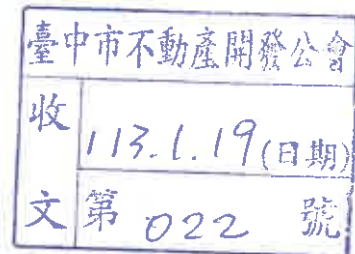 臺中市不動產開發公會
收文
113.1.19(日期)
第 022 號